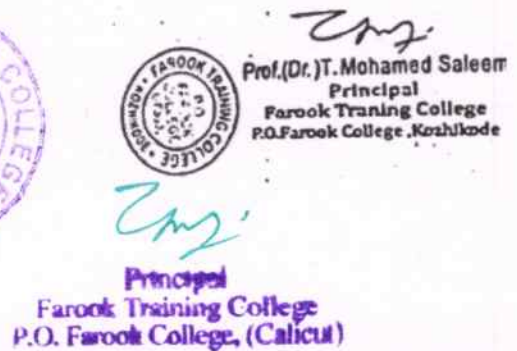 COLLEGE
FAROOK TRAINING COLLEGE • KOZHIKODE •
P.O
Prof.(Dr.)T.Mohamed Saleem
Principal
Farook Traning College
P.O.Farook College ,Kozhikode
Principal
Farook Training College
P.O. Farook College, (Calicut)